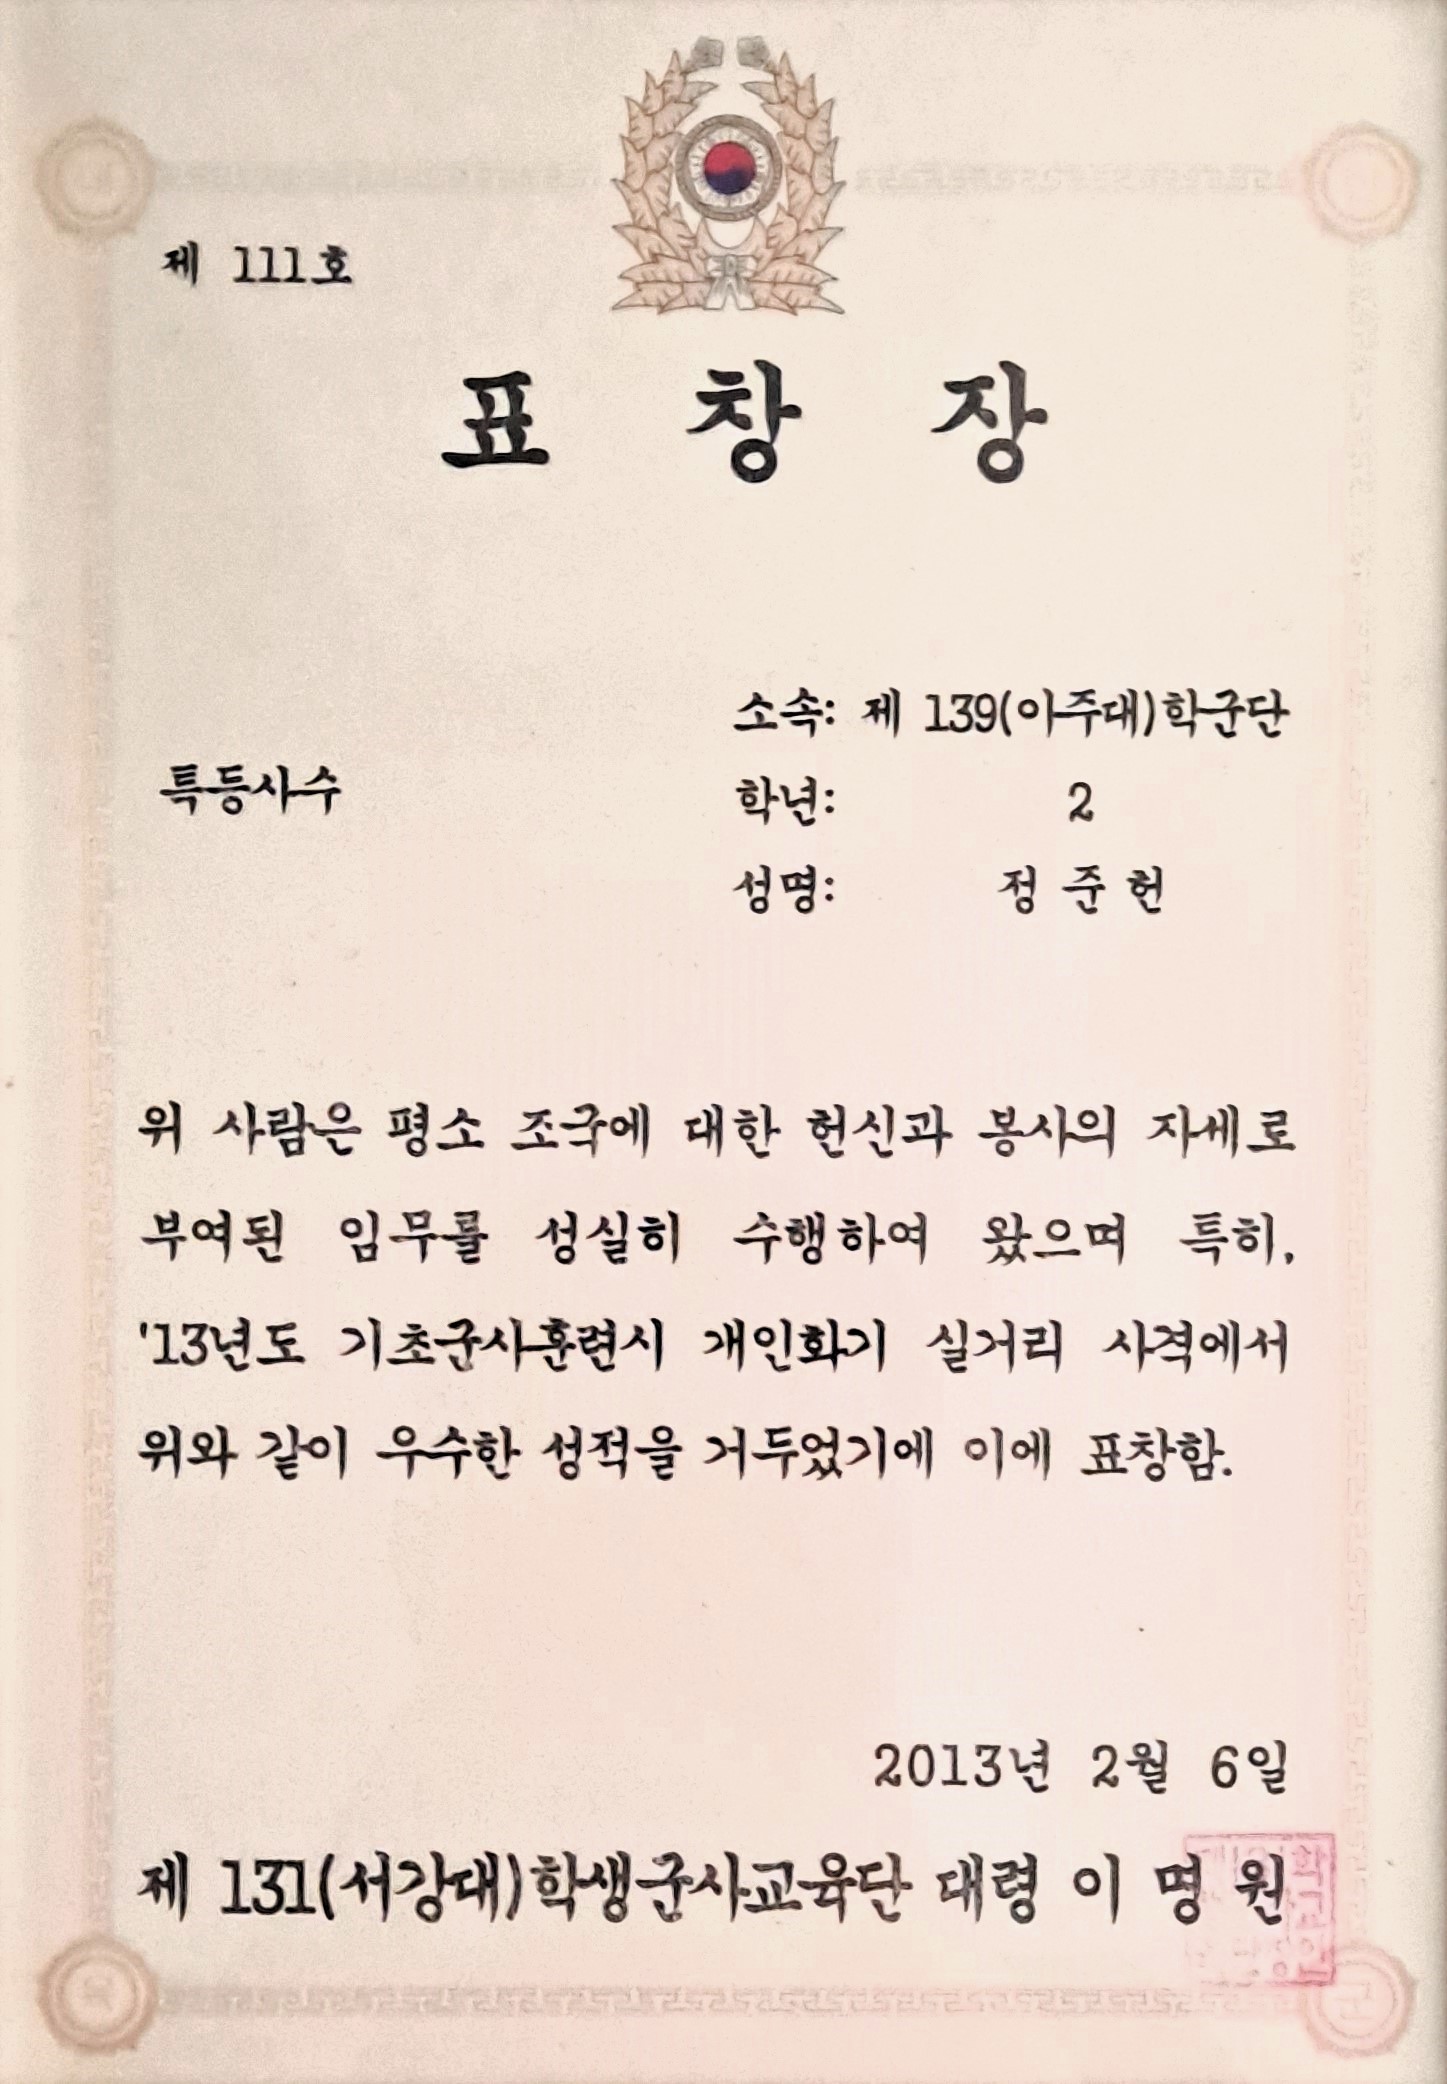 제 111호
표 창 장
소속: 제 139(아주대)학군단
특등사수
학년: 2
성명: 정 준 헌
위 사람은 평소 조국에 대한 헌신과 봉사의 자세로
부여된 임무를 성실히 수행하여 왔으며 특히,
'13년도 기초군사훈련시 개인화기 실거리 사격에서
위와 같이 우수한 성적을 거두었기에 이에 표창함.
2013년 2월 6일
제 131(서강대)학생군사교육단 대령 이 명 원